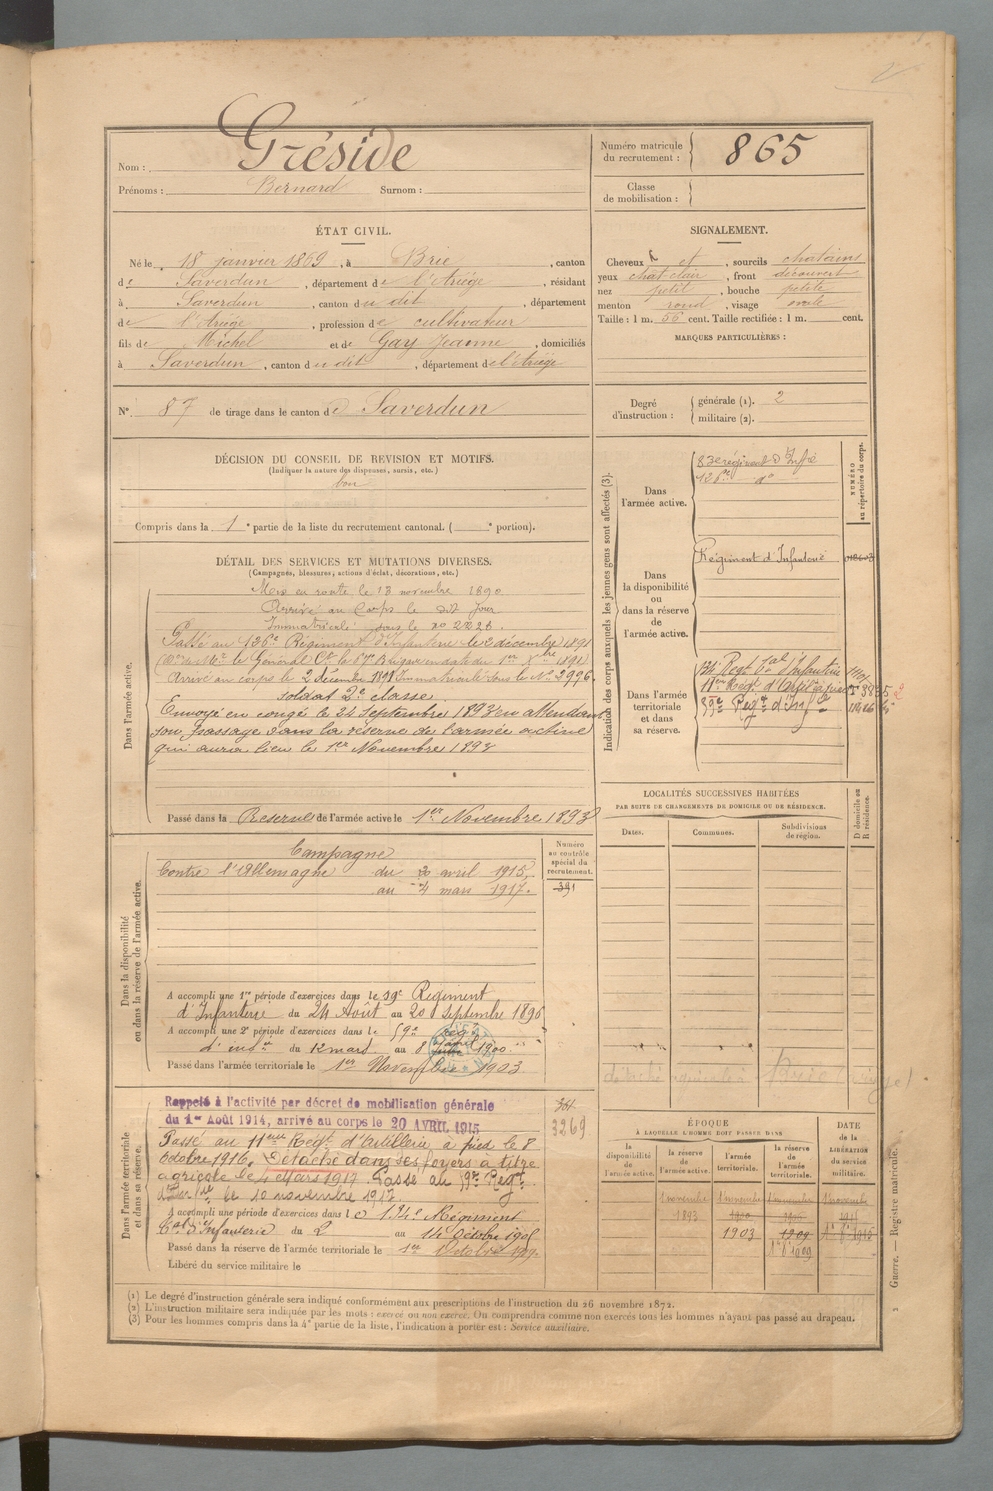 Nom : Gréside
Prénoms : Bernard Surnom :
Numéro matricule du recrutement : 865
Classe de mobilisation :
ÉTAT CIVIL.
Né le 18 janvier 1869, à Brie, canton
de Saverdun, département de l'Ariège, résidant
à Saverdun, canton du dit, département
de l'Ariège, profession de cultivateur
fils de Michel et de Gay Jeanne, domiciliés
à Saverdun, canton du dit, département de l'Ariège
N° 87 de tirage dans le canton de Saverdun
SIGNALEMENT.
Cheveux et, sourcils chatains
yeux chat clair, front découvert
nez petit, bouche petite
menton rond, visage ovale
Taille : 1 m. 56 cent. Taille rectifiée : 1 m. cent.
MARQUES PARTICULIÈRES :
Degré d'instruction : générale (1). 2
militaire (2).
DÉCISION DU CONSEIL DE REVISION ET MOTIFS.
(Indiquer la nature des dispenses, sursis, etc.)
bon
Compris dans la 1e partie de la liste du recrutement cantonal. ( e portion).
DÉTAIL DES SERVICES ET MUTATIONS DIVERSES.
(Campagnes, blessures, actions d'éclat, décorations, etc.)
Dans l'armée active.
Mis en route le 13 novembre 1890
Arrivé au Corps le dit jour
Immatriculé sous le no 2226.
Passé au 126e Régiment d'Infanterie le 2 décembre 1891
Arrivé au corps le 2 décembre 1891 Immatriculé sous le No 2996.
soldat 2e classe.
Envoyé en congé le 24 Septembre 1893 en attendant
son passage dans la réserve de l'armée active
qui aura lieu le 1er Novembre 1893
Passé dans la Réserve de l'armée active le 1er Novembre 1893
Indication des corps auxquels les jeunes gens sont affectés (3).
NUMÉRO au répertoire du corps.
Dans l'armée active.
83e régiment d'Infie
126e do
Dans la disponibilité ou dans la réserve de l'armée active.
Régiment d'Infanterie
Dans l'armée territoriale et dans sa réserve.
134 Regt tal d'Infanterie
11e Regt d'Artil à pied
59e Regt d'Infie
LOCALITÉS SUCCESSIVES HABITÉES
PAR SUITE DE CHANGEMENTS DE DOMICILE OU DE RÉSIDENCE.
Dates. Communes. Subdivisions de région. D domicile ou R résidence.
détaché agricole à Brie (Ariège)
Dans la disponibilité ou dans la réserve de l'armée active.
Numéro au contrôle spécial du recrutement.
391
Campagne
Contre l'Allemagne du 20 avril 1915,
au 4 mars 1917.
A accompli une 1re période d'exercices dans le 59e Regiment
d'Infanterie du 24 Août au 20 Septembre 1896
A accompli une 2e période d'exercices dans le 59e reg
d'infie du 12 mars au 8 avril 1900.
Passé dans l'armée territoriale le 1er Novembre 1903
Dans l'armée territoriale et dans sa réserve.
361
3269
Rappelé à l'activité par décret de mobilisation générale
du 1er Août 1914, arrivé au corps le 20 AVRIL 1915
Passé au 11eme Régt d'Artillerie à pied le 8
octobre 1916. Détaché dans ses foyers à titre
agricole le 4 Mars 1917 Passé au 59e Regt
d'Infie le 10 novembre 1917
A accompli une période d'exercices dans le 134e Régiment
tal d'Infanterie du 2 au 14 Octobre 1905
Passé dans la réserve de l'armée territoriale le 1er Octobre 1909
Libéré du service militaire le
ÉPOQUE
À LAQUELLE L'HOMME DOIT PASSER DANS
la disponibilité de l'armée active.
la réserve de l'armée active.
l'armée territoriale.
la réserve de l'armée territoriale.
DATE de la LIBÉRATION du service militaire.
1 novembre 1 novembre 1 novembre 1 novembre
1893
1903 1909
(1) Le degré d'instruction générale sera indiqué conformément aux prescriptions de l'instruction du 26 novembre 1872.
(2) L'instruction militaire sera indiquée par les mots : exercé ou non exercé. On comprendra comme non exercés tous les hommes n'ayant pas passé au drapeau.
(3) Pour les hommes compris dans la 4e partie de la liste, l'indication à porter est : Service auxiliaire.
2 Guerre. — Registre matricule.